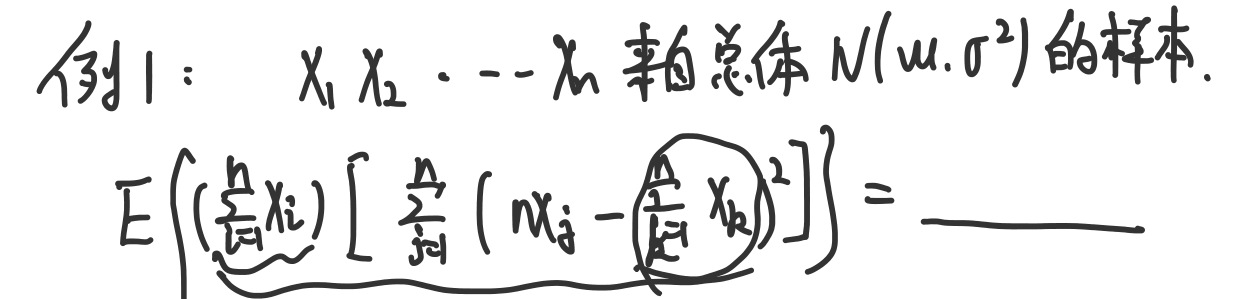 例1: X₁ X₂ ····· Xₙ 来自总体 N(μ.σ²) 的样本.
E{(∑ᵢ₌₁ⁿ Xᵢ)[∑ⱼ₌₁ⁿ (nXⱼ - ∑ₖ₌₁ⁿ Xₖ)²]} = ______